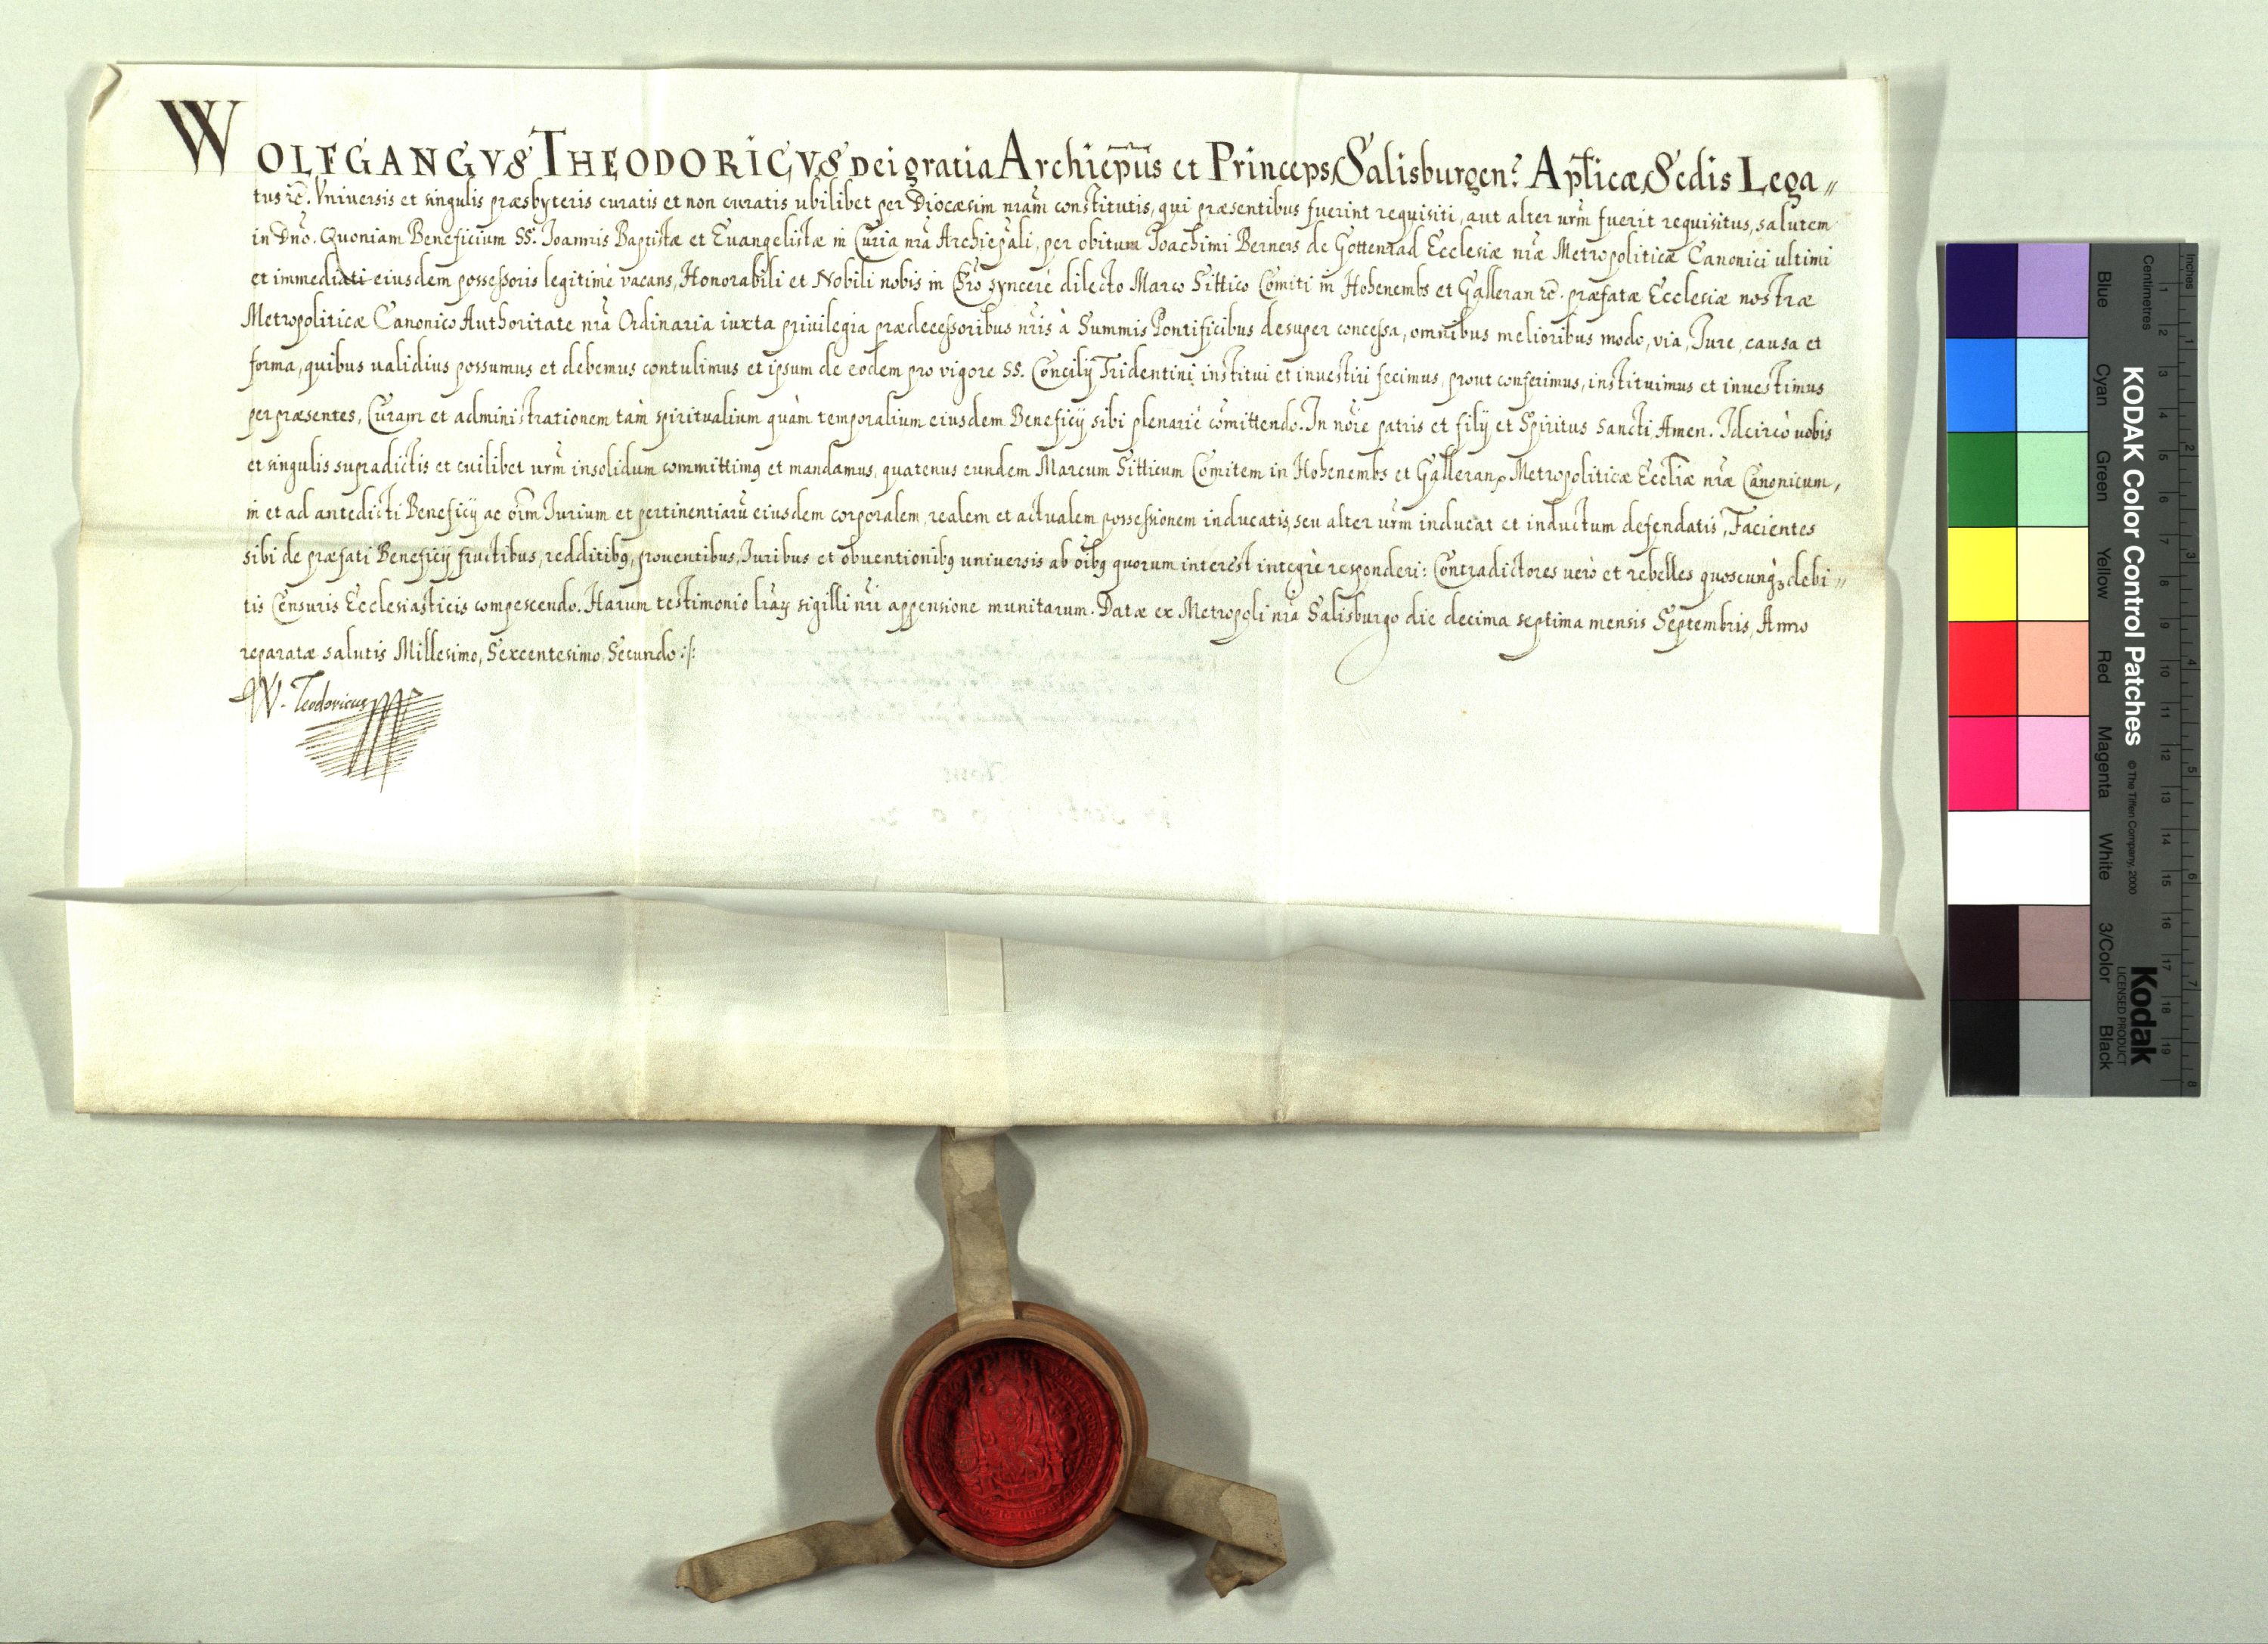 WOLFGANGVS THEODORICVS Dei gratia Archiep̃us et Princeps Salisburgen: Apl̃icæ Sedis Lega〃
tus ꝛc̃. Vniuersis et singulis præsbyteris curatis et non curatis ubilibet per Diocæsim nr̃am constitutis, qui præsentibus fuerint requisiti, aut alter ur̃m fuerit requisitus, salutem
in Dnõ. Quoniam Beneficium SS: Ioannis Baptistæ et Euangelistæ in Curia nr̃a Archiep̃ali, per obitum Ioachimi Berners de Gottenrad Ecclesiæ nr̃æ Metropoliticæ Canonici ultimi
et immediati eiusdem possessoris legitimè vacans, Honorabili et Nobili nobis in Chr̃o synceré dilecto Marco Sittico Comiti in Hohenembs et Galleran ꝛc̃. præfatæ Ecclesiæ nostræ
Metropoliticæ Canonico Authoritate nr̃a Ordinaria iuxta privilegia prædecessoribus nr̃is à Summis Pontificibus desuper concessa, omnibus melioribus modo, via, Iure, causa et
forma, quibus validius possumus et debemus contulimus et ipsum de eodem pro vigore SS. Concilij Tridentini institui et inuestiri fecimus, prout conferimus, instituimus et inuestimus
per præsentes, Curam et administrationem tàm spiritualium quàm temporalium eiusdem Beneficij sibi plenariè com̃ittendo. In noĩe patris et filij et Spiritus Sancti Amen. Idcircò uobis
et singulis supradictis et cuilibet ur̃m insolidum committimꝰ et mandamus, quatenus eundem Marcum Sitticum Comitem in Hohenembs et Galleran, Metropoliticæ Eccl̃iæ nr̃æ Canonicum,
in et ad antedicti Beneficij ac oĩm Iurium et pertinentiarũ eiusdem corporalem, realem et actualem possessionem inducatis, seu alter ur̃m inducat et inductum defendatis, Facientes
sibi de præfati Beneficij fructibus, redditibꝰ, prouentibus, Iuribus et obuentionibꝰ universis ab oĩbꝰ quorum interest integrè responderi: Contradictores uerò et rebelles quoscunqꝫ debi〃
tis Censuris Ecclesiasticis compescendo. Harum testimonio lr̃aꝝ sigilli nr̃i appensione munitarum. Datæ ex Metropoli nr̃a Salisburgo die decima septima mensis Septembris, Anno
reparatæ salutis Millesimo, Sexcentesimo, Secundo :/:
W. Teodoricus
KODAK Color Control Patches
© The Tiffen Company, 2000
Kodak
LICENSED PRODUCT
Blue Cyan Green Yellow Red Magenta White 3/Color Black
Centimetres 1 2 3 4 5 6 7 8 9 10 11 12 13 14 15 16 17 18 19
Inches 1 2 3 4 5 6 7 8